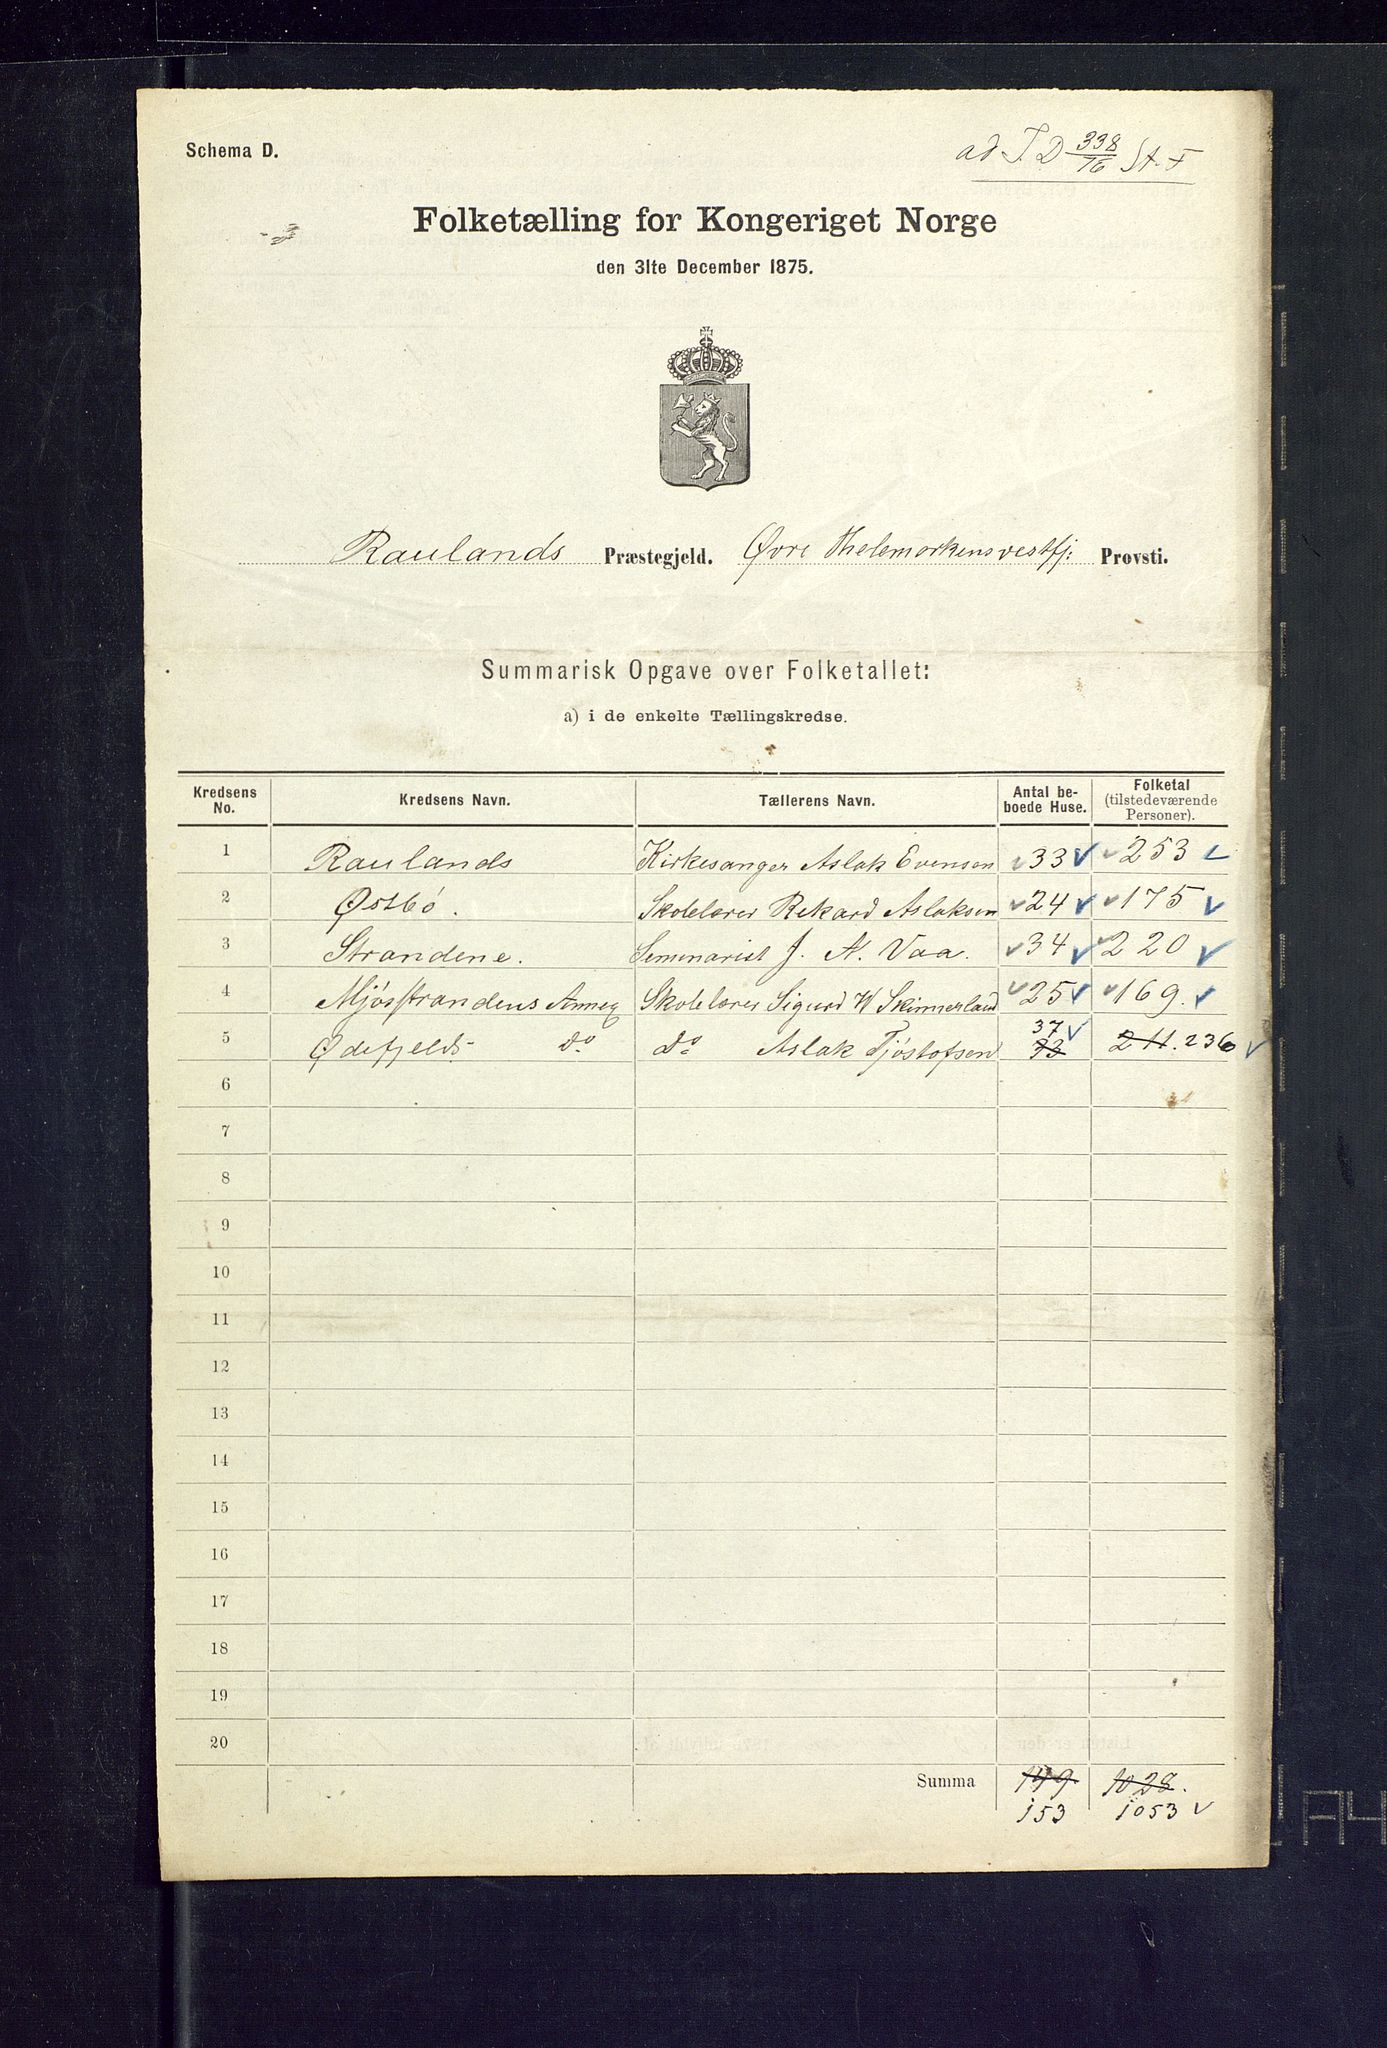 Schema D.
ad J. D 338/76 St. F
Folketælling for Kongeriget Norge
den 31te December 1875.
Raulands Præstegjeld. Øvre Thelemarkens vestfj: Provsti.
Summarisk Opgave over Folketallet:
a) i de enkelte Tællingskredse.
Kredsens No. Kredsens Navn. Tællerens Navn. Antal beboede Huse. Folketal (tilstedeværende Personer).
1 Raulands Kirkesanger Aslak Evensen 33 253
2 Østbö. Skolelærer Rikard Aslaksen 24 175
3 Strandene. Seminarist J. N. Vaa. 34 220
4 Mjösstrandens Annex Skolelærer Sigurd K Skinnerland 25 169.
5 Ødefjelds do do Aslak Tjöstofsen 33 37 211. 236
6
7
8
9
10
11
12
13
14
15
16
17
18
19
20
Summa 149. 1028.
153 1053
A4